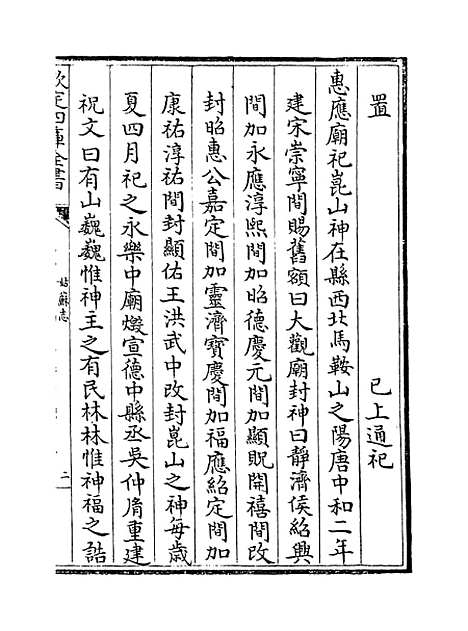 置　　　　　　　　　已上通祀
惠應廟祀崑山神在縣西北馬鞍山之陽唐中和二年
建宋崇寧間賜舊額曰大觀廟封神曰靜濟侯紹興
間加永應淳熙間加昭德慶元間加顯貺開禧間改
封昭惠公嘉定間加靈濟寶慶間加福應紹定間加
康祐淳祐間封顯佑王洪武中改封崑山之神每歲
夏四月祀之永樂中廟燬宣德中縣丞吳仲郁重建
祝文曰有山巍巍惟神主之有民林林惟神福之誥
欽定四庫全書
姑蘇志